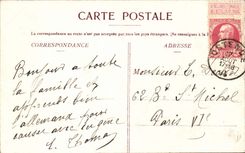 CARTE POSTALE
La correspondance au recto n'est pas acceptée par tous les pays étrangers. (Se renseigner à la
CORRESPONDANCE
ADRESSE
Bonjour à toute
la famille et
apprends bien
l'allemand pour
causer avec
L. Thomas
Monsieur L.
62 Bd St Michel
Paris VIe